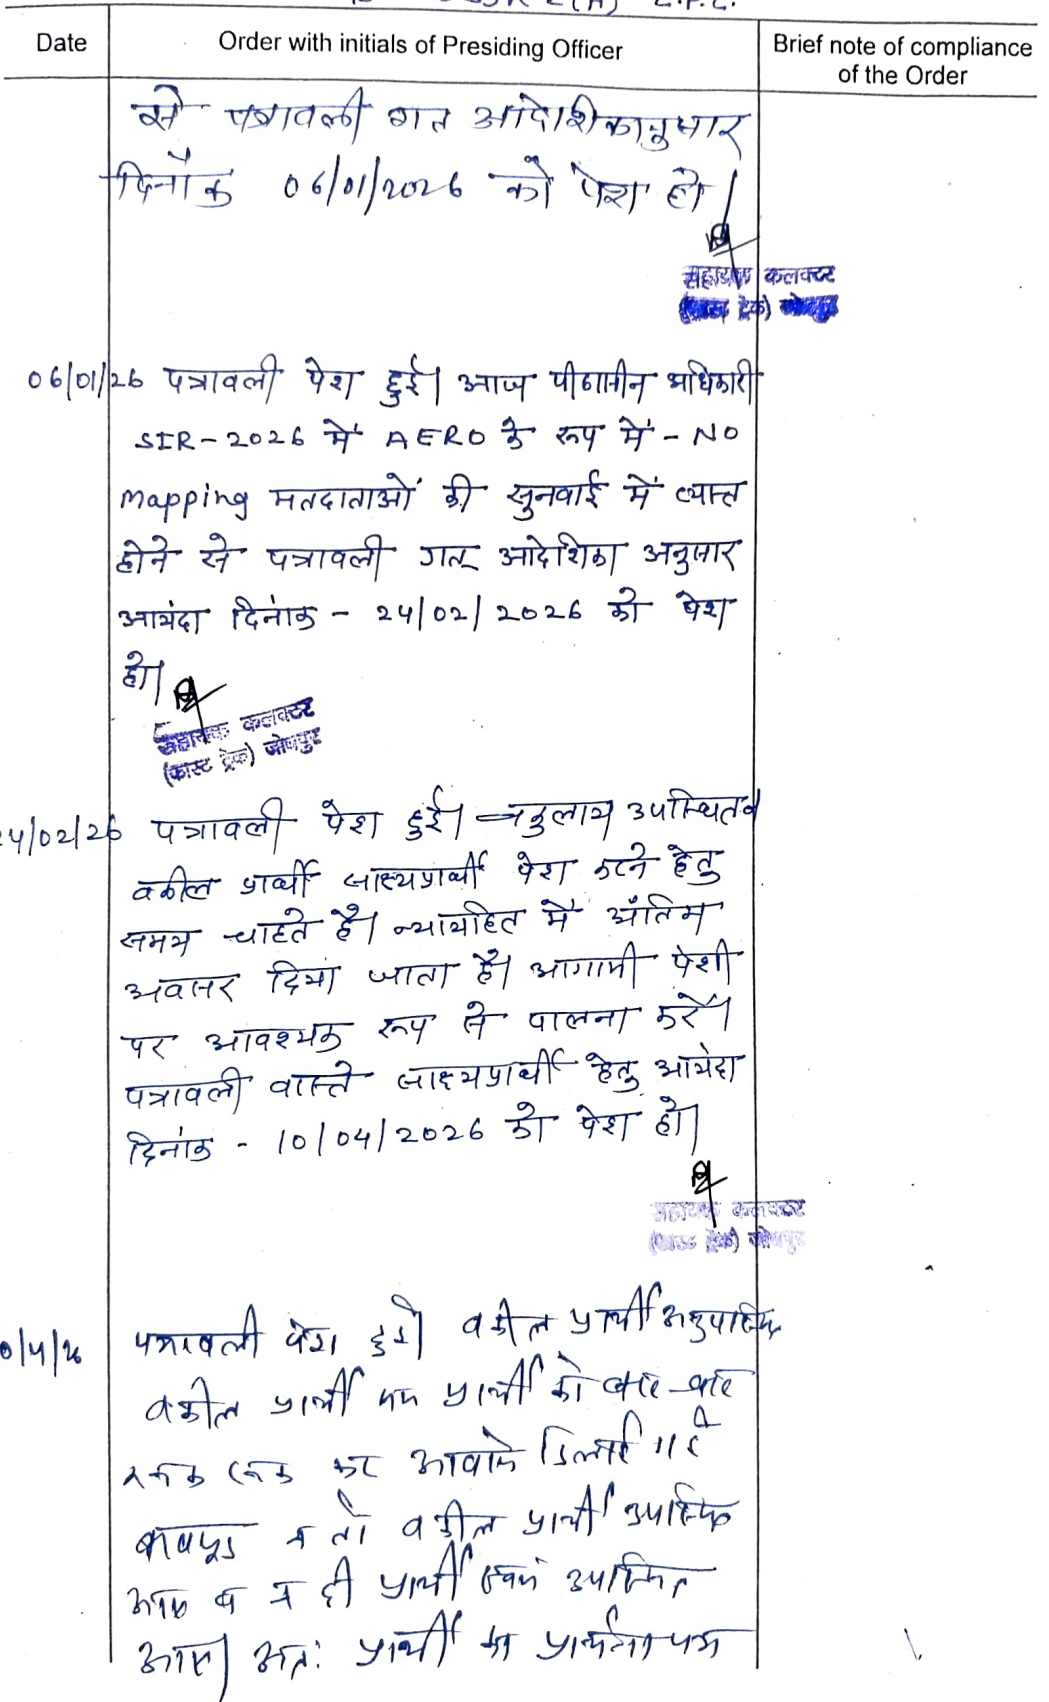 Date
Order with initials of Presiding Officer
Brief note of compliance
of the Order
से पत्रावली गत आदेशिकानुसार
दिनांक 06/01/2026 को पेश हो।
सहायक कलक्टर
(फास्ट ट्रेक)
06/01/26 पत्रावली पेश हुई। आज पीठासीन अधिकारी
SIR-2026 में AERO के रूप में - NO
Mapping मतदाताओं की सुनवाई में व्यस्त
होने से पत्रावली गत आदेशिका अनुसार
आयंदा दिनांक - 24/02/2026 को पेश
हो।
सहायक कलक्टर
(फास्ट ट्रेक) जोधपुर
24/02/26 पत्रावली पेश हुई। उपस्थित।
वकील प्रार्थी साक्ष्यप्रार्थी पेश करने हेतु
समय चाहते है। न्यायहित में अंतिम
अवसर दिया जाता है। आगामी पेशी
पर आवश्यक रूप से पालना करें।
पत्रावली वास्ते साक्ष्यप्रार्थी हेतु आयंदा
दिनांक - 10/04/2026 को पेश हो।
सहायक कलक्टर
(फास्ट ट्रेक) जोधपुर
0/4/26 पत्रावली पेश हुई। वकील प्रार्थी अनुपस्थित
वकील प्रार्थी प्रार्थी को बार-बार
रूक रूक कर आवाजे दिलाई गई
बावजूद न तो वकील प्रार्थी उपस्थित
आए व न ही प्रार्थी स्वयं उपस्थित
आए। अतः प्रार्थी का प्रार्थना पत्र